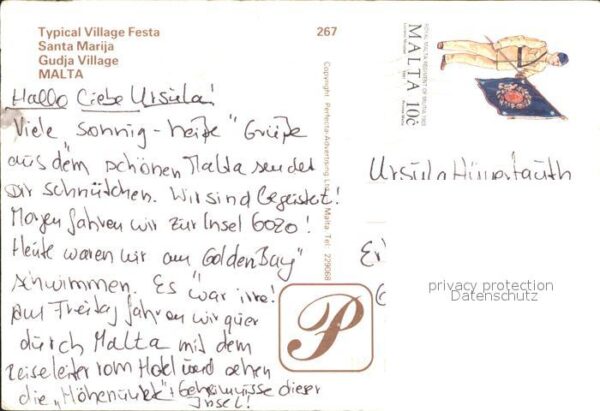 Typical Village Festa
Santa Marija
Gudja Village
MALTA
267
Copyright Perfecta-Advertising Ltd. Malta Tel: 229068
ROYAL MALTA REGIMENT OF MILITIA 1903
MALTA 10c
Hallo Liebe Ursula!
Viele sonnig-heiße Grüße
aus dem schönen Malta sendet
Dir Schnütchen. Wir sind begeistert!
Morgen fahren wir zur Insel Gozo!
Heute waren wir am "Golden Bay"
schwimmen. Es war irre!
Am Freitag fahren wir quer
durch Malta mit dem
Reiseleiter vom Hotel und sehen
die "Höhepunkte" + Geheimnisse dieser
Insel!
Ursula
P
privacy protection
Datenschutz